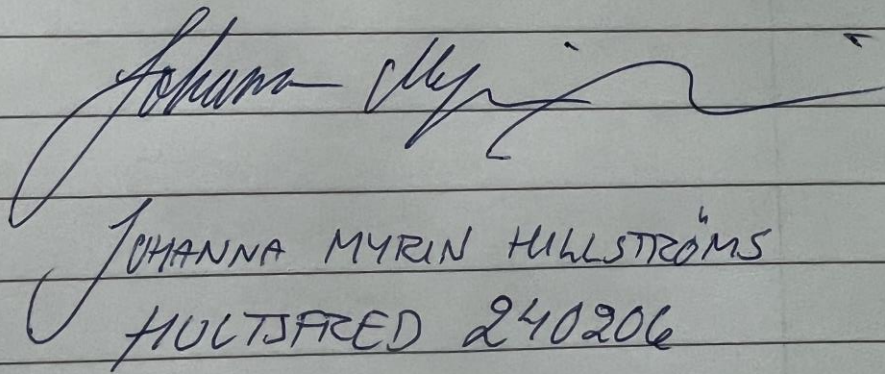 Johanna Myrin
JOHANNA MYRIN HILLSTRÖMS
HULTSFRED 240206